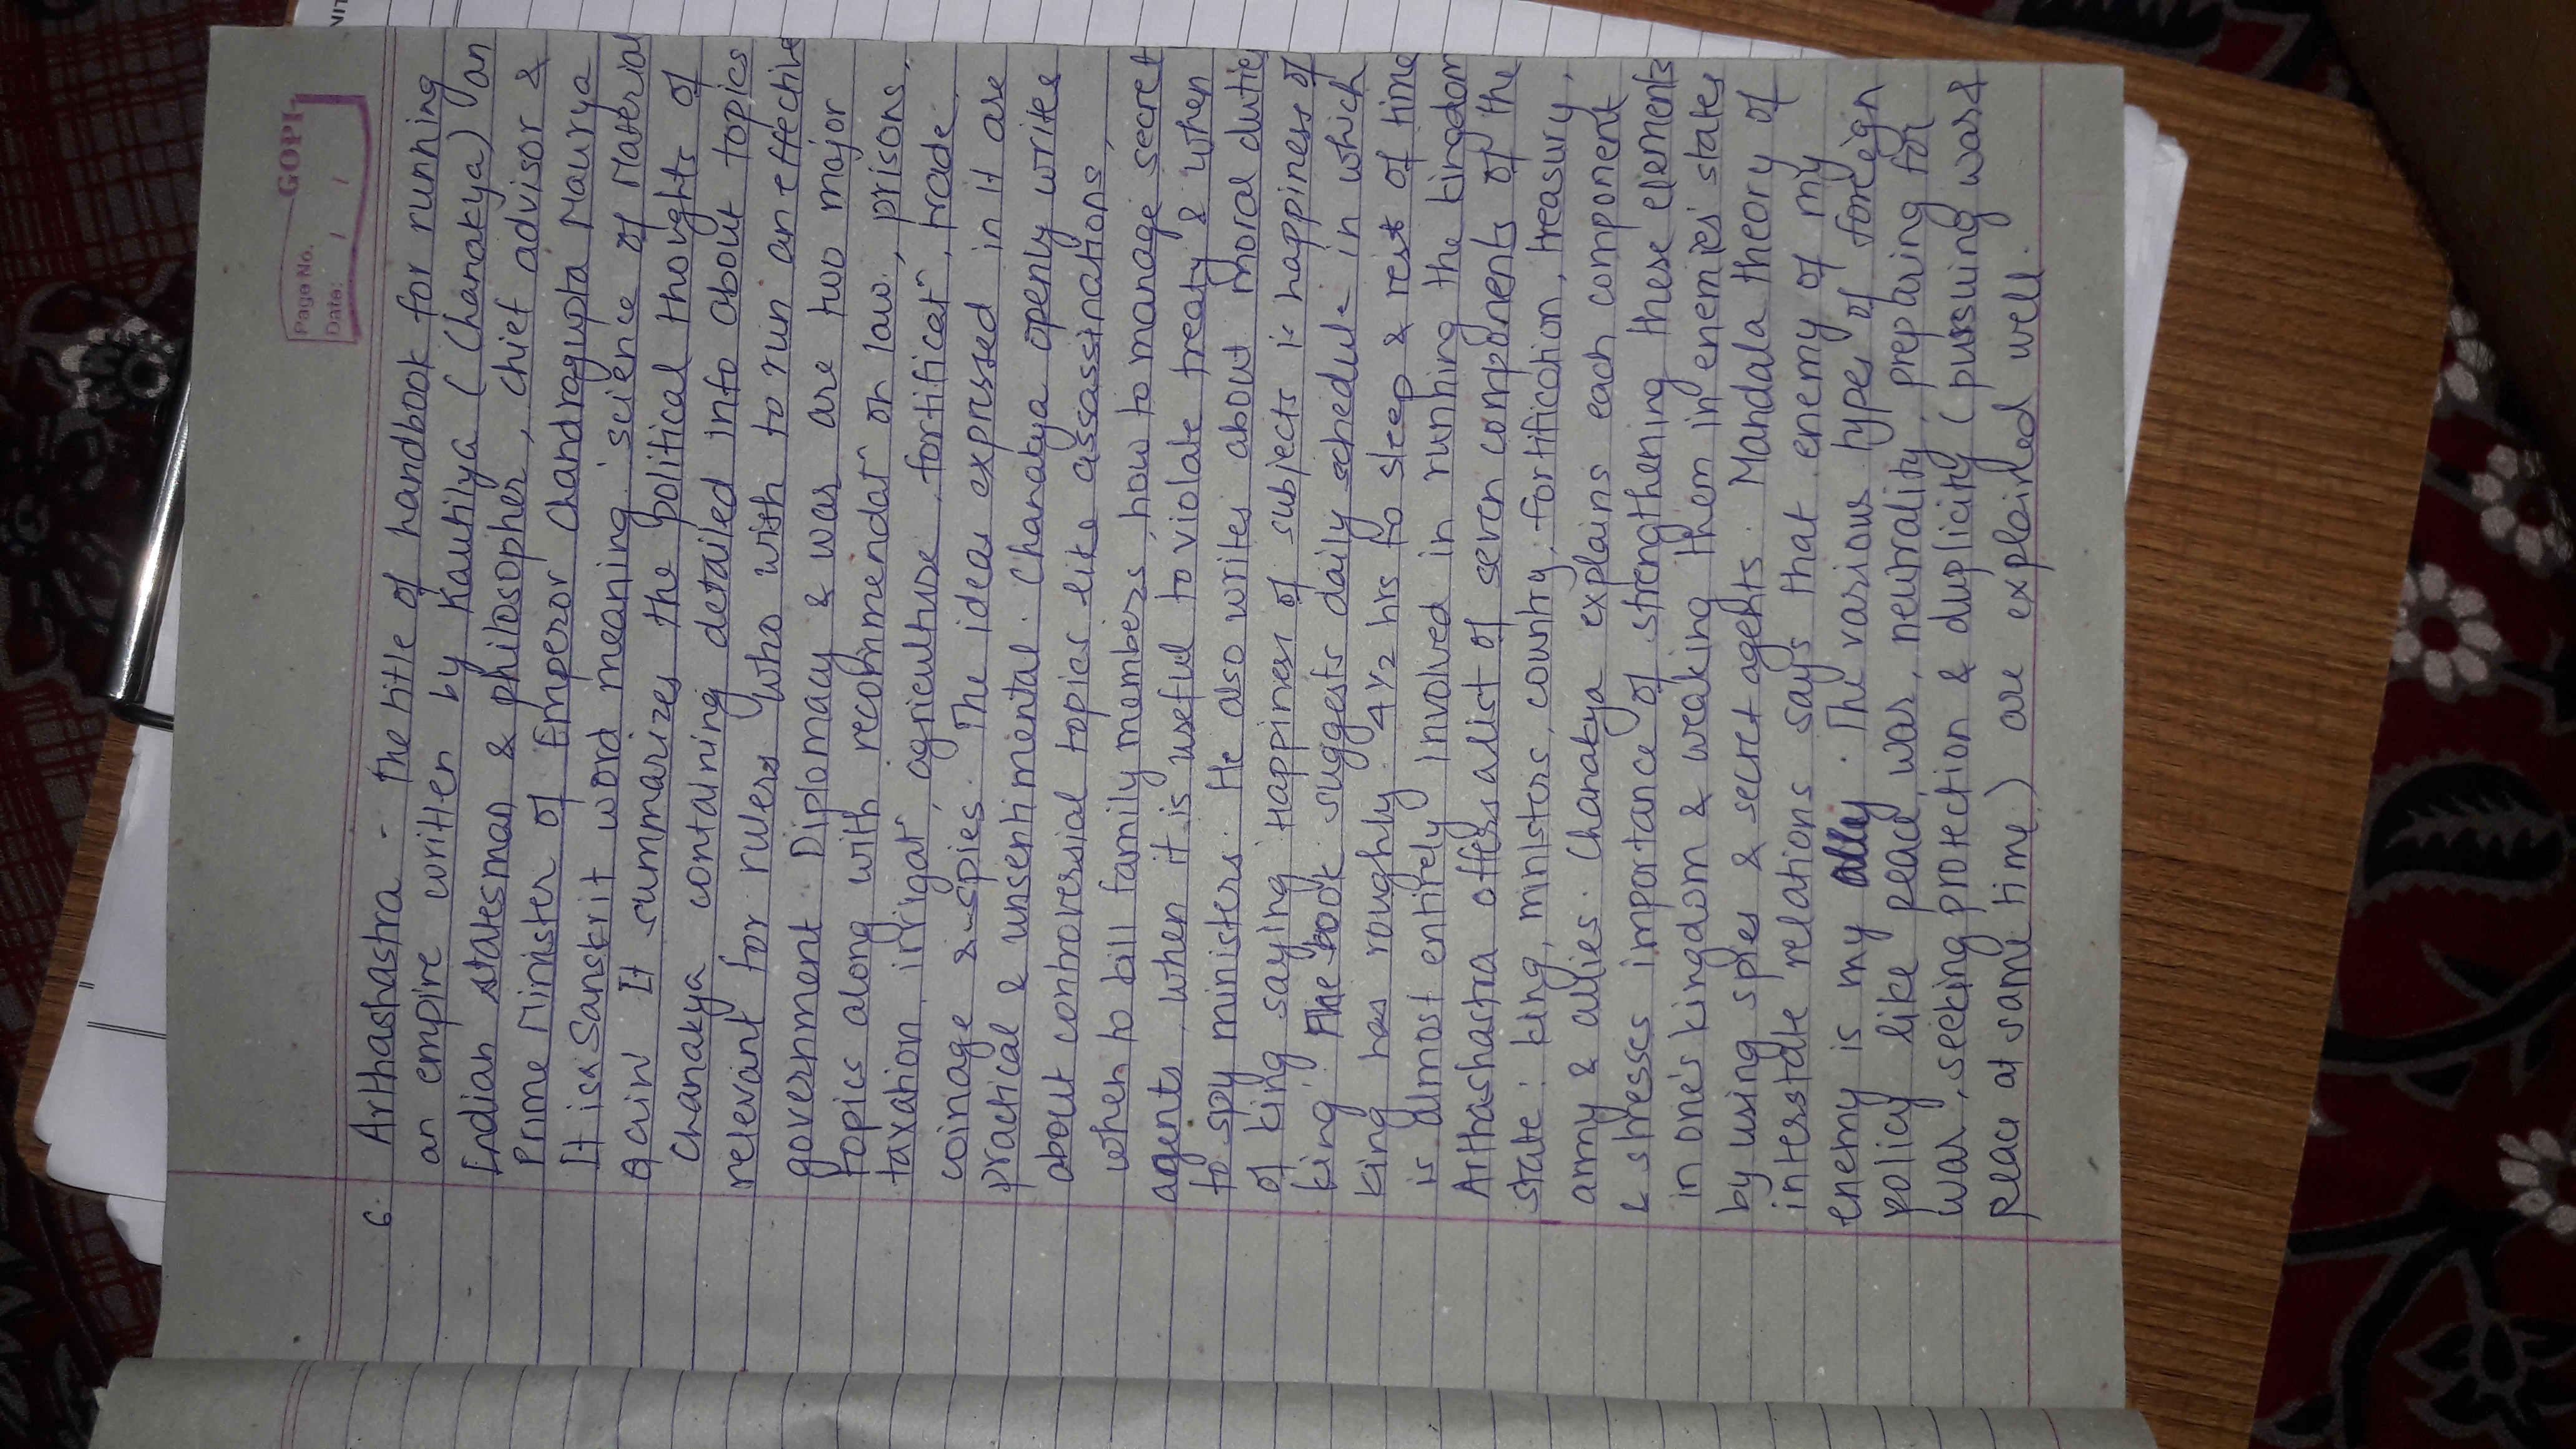 GOPI
Page No.
Date: / /
6. Arthashastra - The title of handbook for running
an empire written by Kautilya (Chanakya) an
Indian statesman & philosopher, chief advisor &
Prime Minister of Emperor Chandragupta Maurya
It is a Sanskrit word meaning 'science of Material
gain' It summarizes the political thoughts of
Chanakya containing detailed info about topics
relevant for rulers who wish to run an effective
government. Diplomacy & war are two major
topics along with recommendatⁿ on law, prisons,
taxation, irrigatⁿ, agriculture, fortificatⁿ, trade,
coinage & spies. The ideas expressed in it are
practical & unsentimental. Chanakya openly writes
about controversial topics like assassinations,
when to kill family members, how to manage secret
agents, when it is useful to violate treaty & when
to spy ministers. He also writes about moral duties
of king saying 'Happiness of subjects is happiness of
king'. The book suggests daily schedule in which
king has roughly 4 1/2 hrs to sleep & rest of time
is almost entirely involved in running the kingdom
Arthashastra offers a list of seven components of the
state: king, ministers, country, fortification, treasury,
army & allies. Chanakya explains each component
& stresses importance of strengthening these elements
in one's kingdom & weaking them in enemies' states
by using spies & secret agents. Mandala theory of
interstate relations says that enemy of my
enemy is my ally. The various types of foreign
policy like peace, war, neutrality, preparing for
war, seeking protection & duplicity (pursuing war &
peace at same time) are explained well.